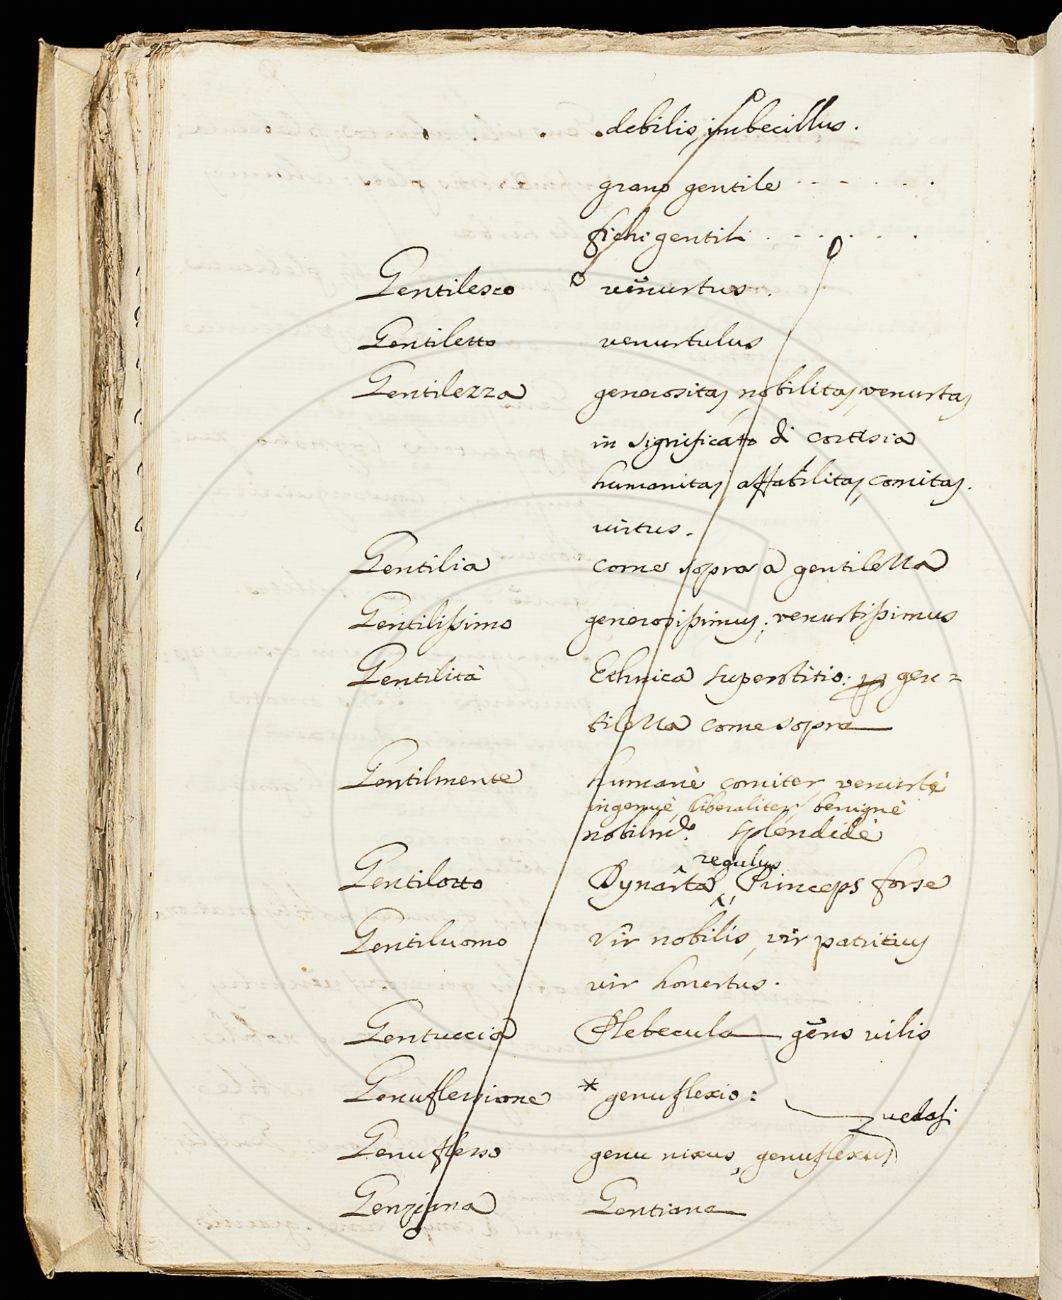 debilis, imbecillus.
grano gentile
fichi gentili
Gentilesco venustus.
Gentiletto venustulus
Gentilezza generositas, nobilitas, venustas
in significato di cortesia
humanitas, affabilitas, comitas.
virtus.
Gentilia come sopra a gentilezza
Gentilissimo generosissimus, venustissimus
Gentilità Ethnica superstitio. gen=
tilezza come sopra
Gentilmente humanè comiter, venustè
ingenuè, liberaliter, benignè
splendidè
regulus
Gentilotto Dynasta, Princeps forse
Gentiluomo Vir nobilis, vir patritius
vir honestus.
Gentuccia Plebecula gens vilis
Genuflessione * genuflexio:
vedasi
Genuflesso genu nixus, genuflexus
Genziana Gentiana